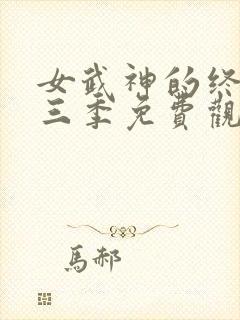 女武神的终
三季免費觀
馬郝